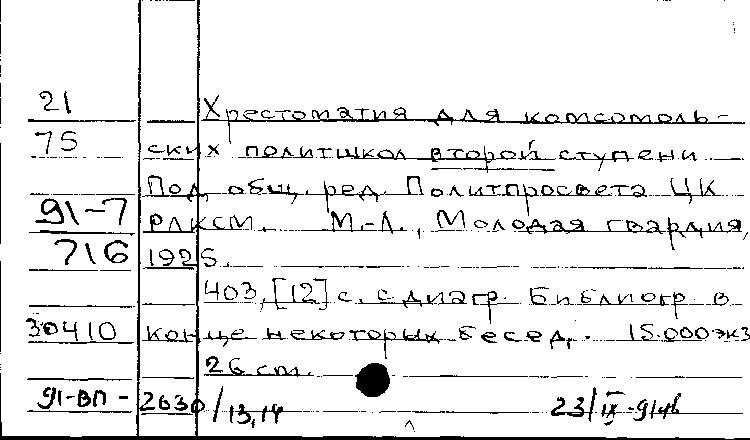 21 Хрестоматия для комсомоль-
75 ских политшкол второй ступени
Под общ. ред. Политпросвета ЦК
91-7 РЛКСМ. М.-Л., Молодая гвардия,
716 1925.
403,[12] с. с диагр. Библиогр. в
30410 конце некоторых бесед. 15.000 экз
26 см.
91-ВП - 2630/13,14 23/IX-91